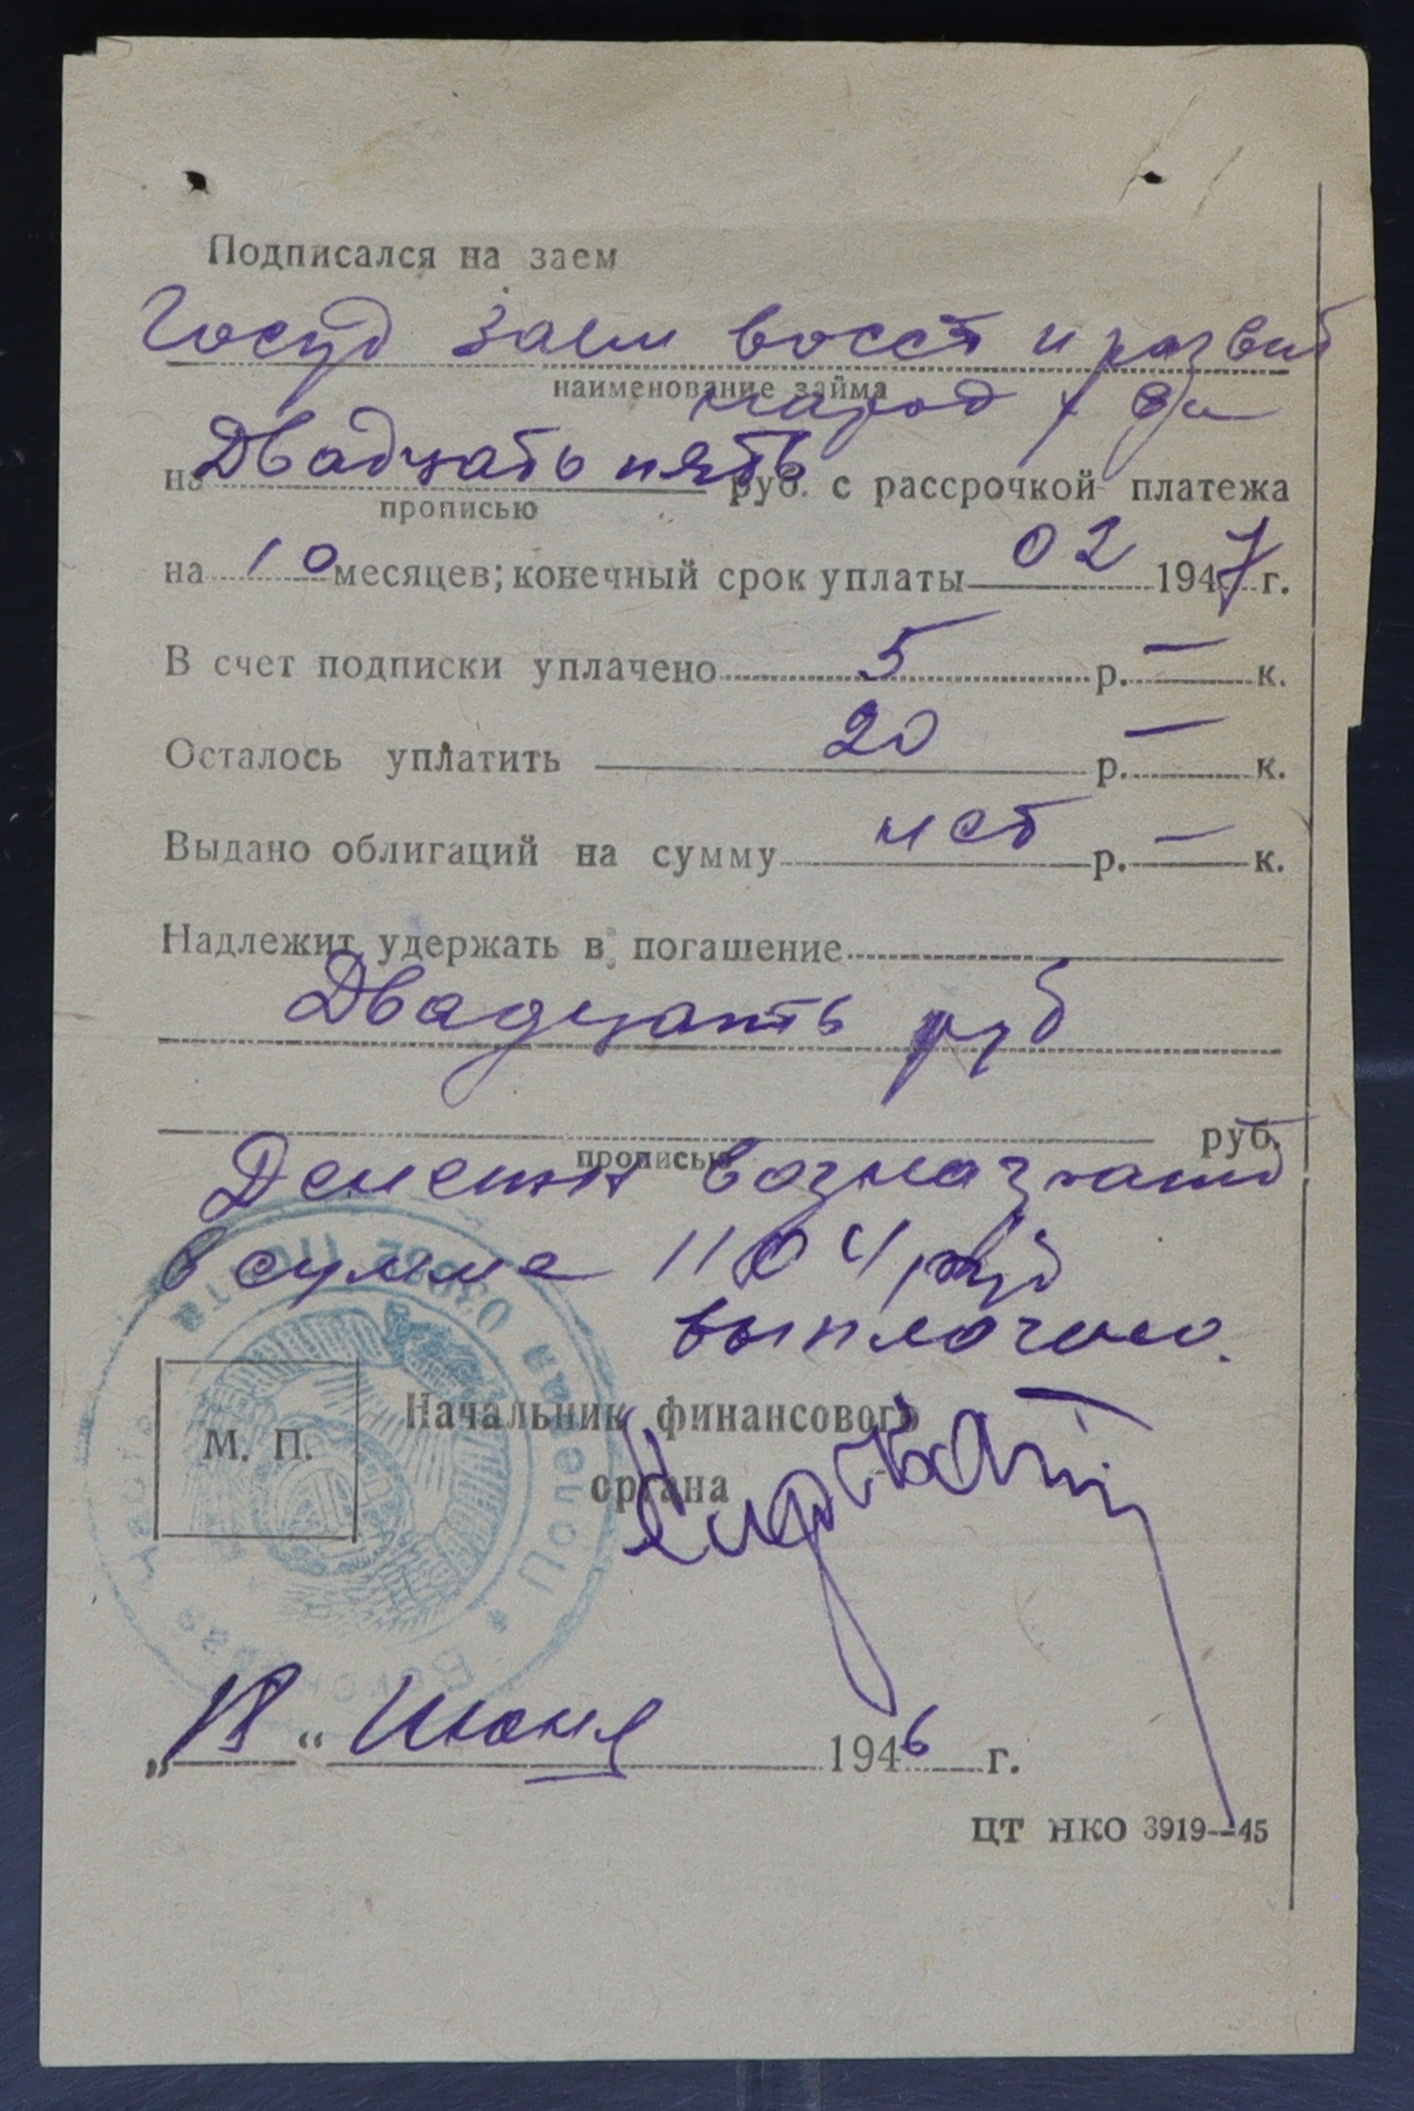 Подписался на заем
Госуд заем восст и развит
наименование займа
народ х-ва
на Двадцать пять руб. с рассрочкой платежа
прописью
на 10 месяцев; конечный срок уплаты 02 1947 г.
В счет подписки уплачено 5 р. — к.
Осталось уплатить 20 р. — к.
Выдано облигаций на сумму нет р. — к.
Надлежит удержать в погашение
Двадцать руб
руб.
прописью
Денежн вознагражд
в сумме 1104 руб
выплочено.
Начальник финансового
М. П.
органа
Полевая почта
„18“ Июня 1946 г.
ЦТ НКО 3919—45